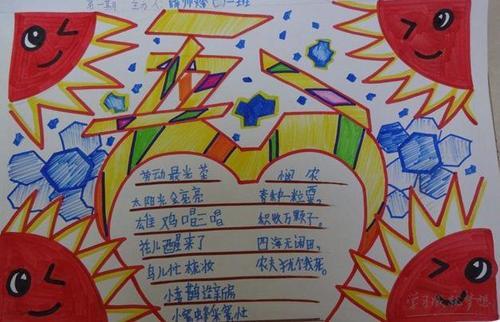 第一期 主办人 七一班
五一
劳动最光荣
太阳光金亮亮
雄鸡唱三唱
花儿醒来了
鸟儿忙梳妆
小喜鹊造新房
小蜜蜂采蜜忙
悯农
春种一粒粟，
秋收万颗子。
四海无闲田，
农夫犹饿死。
学习成就梦想